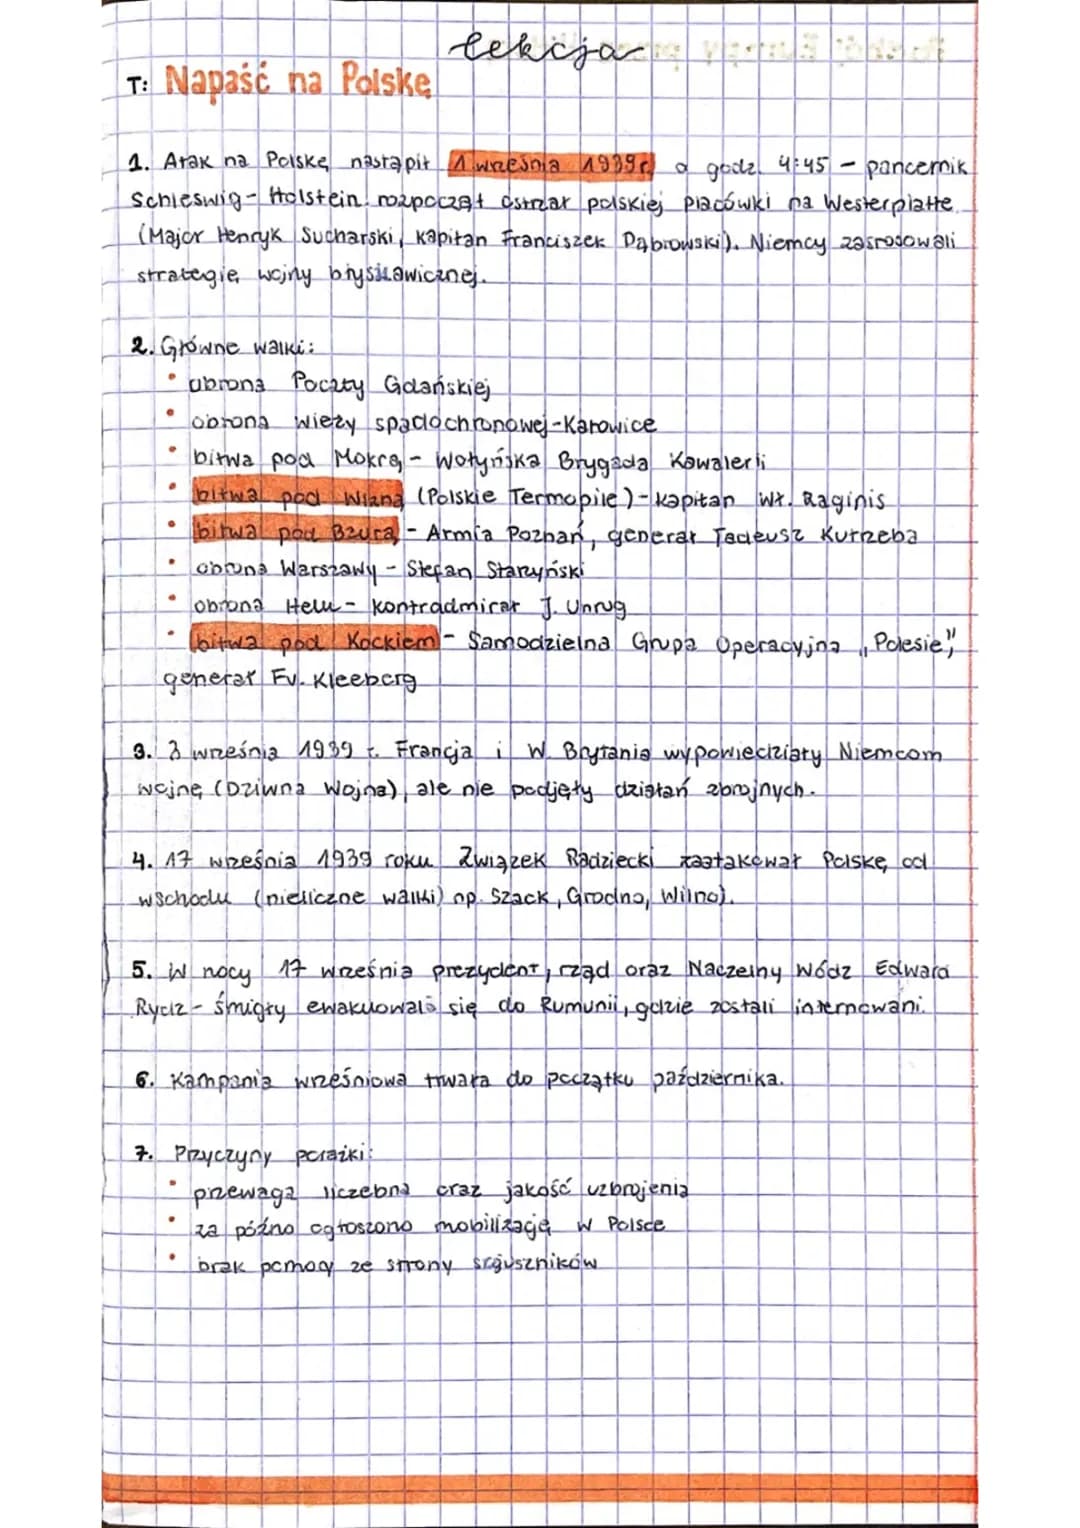 lekcja
T: Napaść na Polskę
1. Atak na Polskę nastąpił 1 września 1939r. o godz. 4:45 - pancernik
Schleswig - Holstein rozpoczął ostrzał polskiej placówki na Westerplatte
(Major Henryk Sucharski, kapitan Franciszek Dąbrowski). Niemcy zastosowali
strategię wojny błyskawicznej.
2. Główne walki:
• obrona Poczty Gdańskiej
• obrona wieży spadochronowej - Katowice
• bitwa pod Mokrą - Wołyńska Brygada Kawalerii
• bitwa pod Wizną (Polskie Termopile) - kapitan Wł. Raginis
• bitwa pod Bzurą - Armia Poznań, generał Tadeusz Kutrzeba
• obrona Warszawy - Stefan Starzyński
• obrona Helu - kontradmirał J. Unrug
• bitwa pod Kockiem - Samodzielna Grupa Operacyjna „Polesie”,
generał Fr. Kleeberg
3. 3 września 1939 r. Francja i W. Brytania wypowiedziały Niemcom
wojnę (Dziwna Wojna), ale nie podjęły działań zbrojnych.
4. 17 września 1939 roku Związek Radziecki zaatakował Polskę od
wschodu (nieliczne walki) np. Szack, Grodno, Wilno).
5. W nocy 17 września prezydent, rząd oraz Naczelny Wódz Edward
Rydz - Śmigły ewakuowali się do Rumunii, gdzie zostali internowani.
6. Kampania wrześniowa trwała do początku października.
7. Przyczyny porażki:
• przewaga liczebna oraz jakość uzbrojenia
• za późno ogłoszono mobilizację w Polsce
• brak pomocy ze strony sojuszników